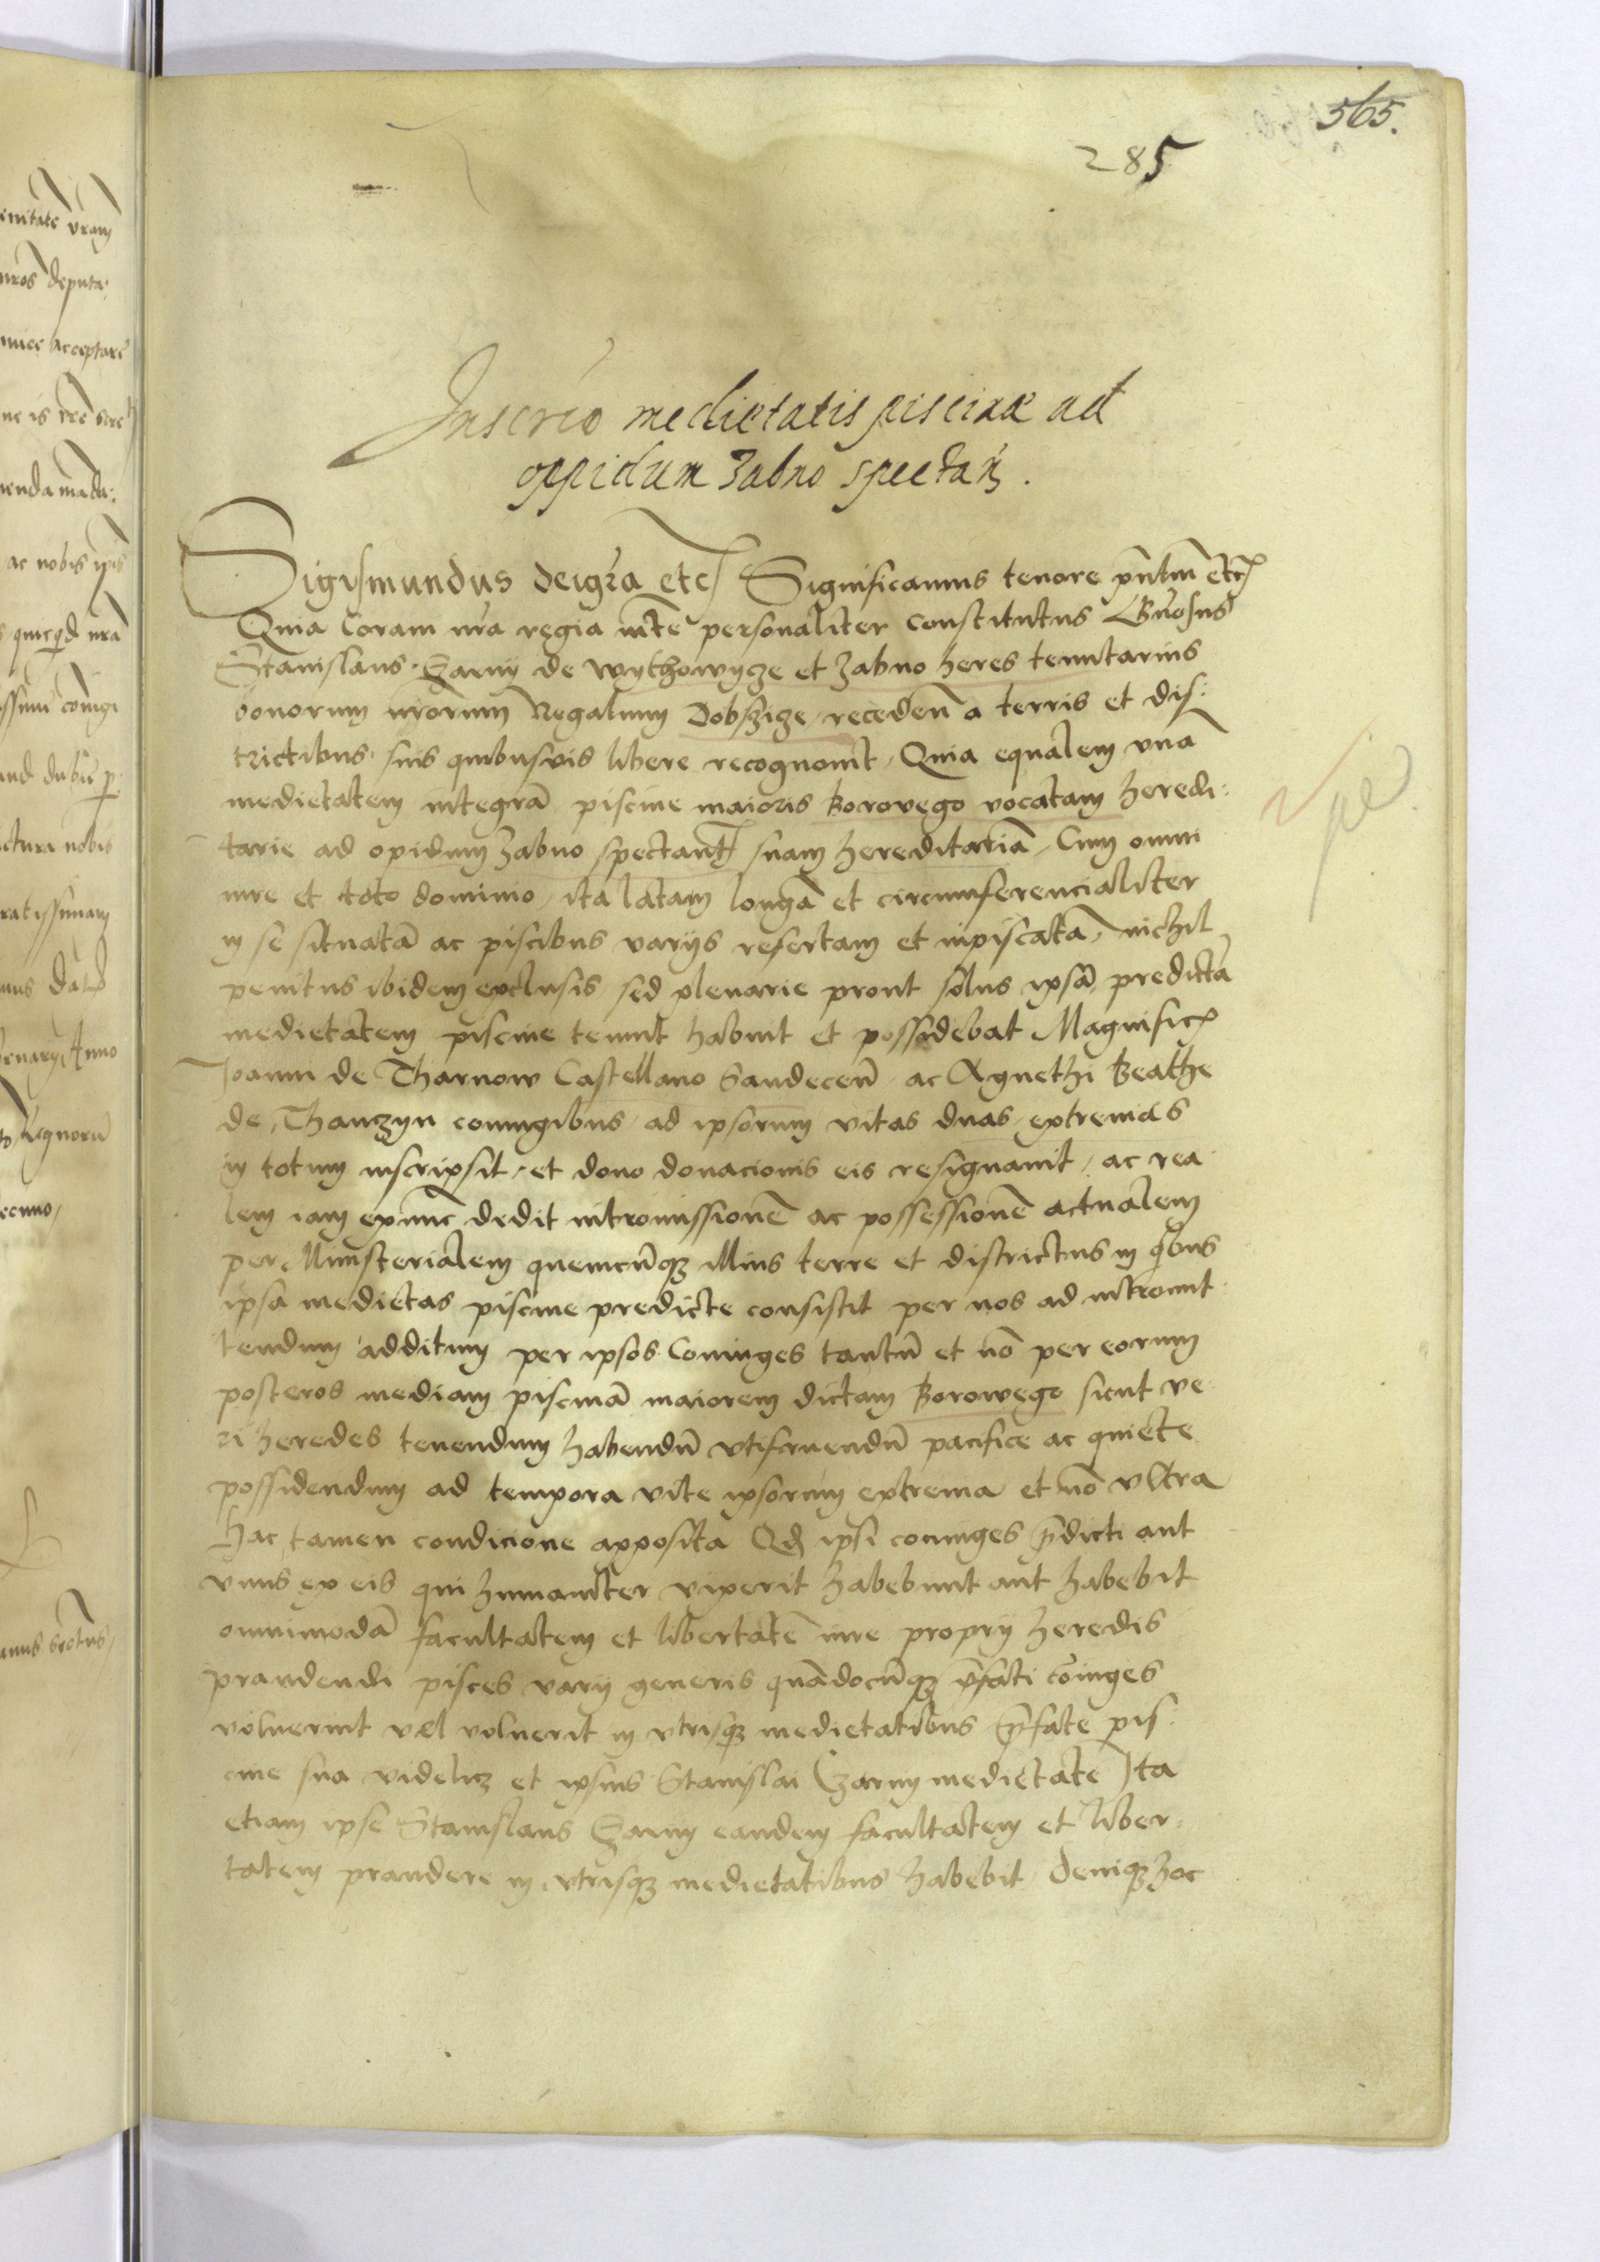 565.
285
Inscrio medietatis piscinæ ad
oppidum Zabno spectan.
Sigismundus dei gra etc Significamus tenore pntm etc
Quia Coram nra regia mte personaliter constitutus Gnosus
Stanislaus Czarny de Wythowycze et Zabno heres tenutarius
bonorum nrorum Regalium Dobszicze, receden a terris et dis:
trictibus suis quibusvis libere recognouit, Quia equalem vna
medietatem integra piscine maioris Borovego vocatam heredi:
tarie ad opidum Zabno spectant suam hereditariã, Cum omni
iure et toto dominio, ita latam longã et circumferencialiter
in se situatã ac piscibus varijs refertam et inpiscatã, nichil
penitus ibidem exclusis sed plenarie prout solus ipsã predictã
medietatem piscine tenuit habuit et possidebat Magnific
Joanni de Tharnow Castellano Sandecen ac Agnethi Beathe
de Thanczyn coniugibus ad ipsorum vitas duas extremas
in totum inscripsit, et dono donacionis eis resignauit, ac rea
lem iam exnunc dedit intromissionẽ ac possessionẽ actualem
per Ministerialem quemcũqz illius terre et districtus in qbus
ipsa medietas piscine predicte consistit per nos ad intromit
tendum additum per ipsos Coniuges tantũ et nõ per eorum
posteros mediam piscinã maiorem dictam Borowego sicut ve
ri heredes tenendum habendũ vtifruendũ pacifice ac quiete
possidendum ad tempora vite ipsorum extrema et nõ vltra
Hac tamen condicione apposita Qd ipsi coniuges pdicti aut
vnus ex eis qui humaniter vixerit habebunt aut habebit
omnimodã facultatem et libertatẽ iure proprij heredis
prandendi pisces varij generis quãdocũqz pfati cõiuges
voluerint vel voluerit in vtrisqz medietatibus pfate pis
cine sua videlicz et ipsius Stanislai Czarny medietate Ita
etiam ipse Stanislaus Czarny eandem facultatem et liber:
tatem prandere in vtrisqz medietatibus habebit deniqz hoc